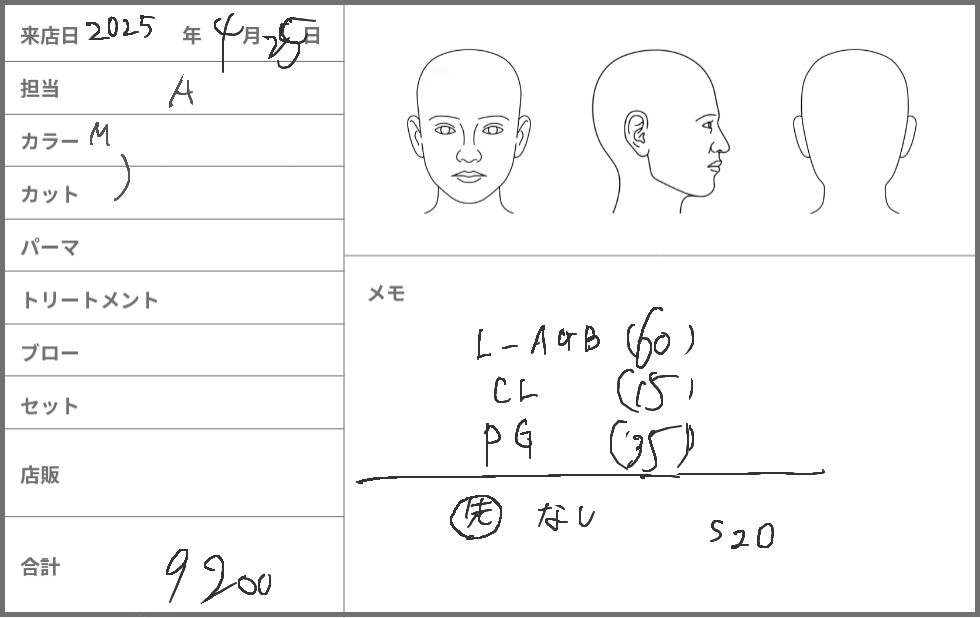 来店日 2025 年 4月 25日
担当 A
カラー M
カット )
パーマ
トリートメント
ブロー
セット
店販
合計 9200
メモ
L-AGB (60)
CL (15)
PG (35)
㊛ なし
S20